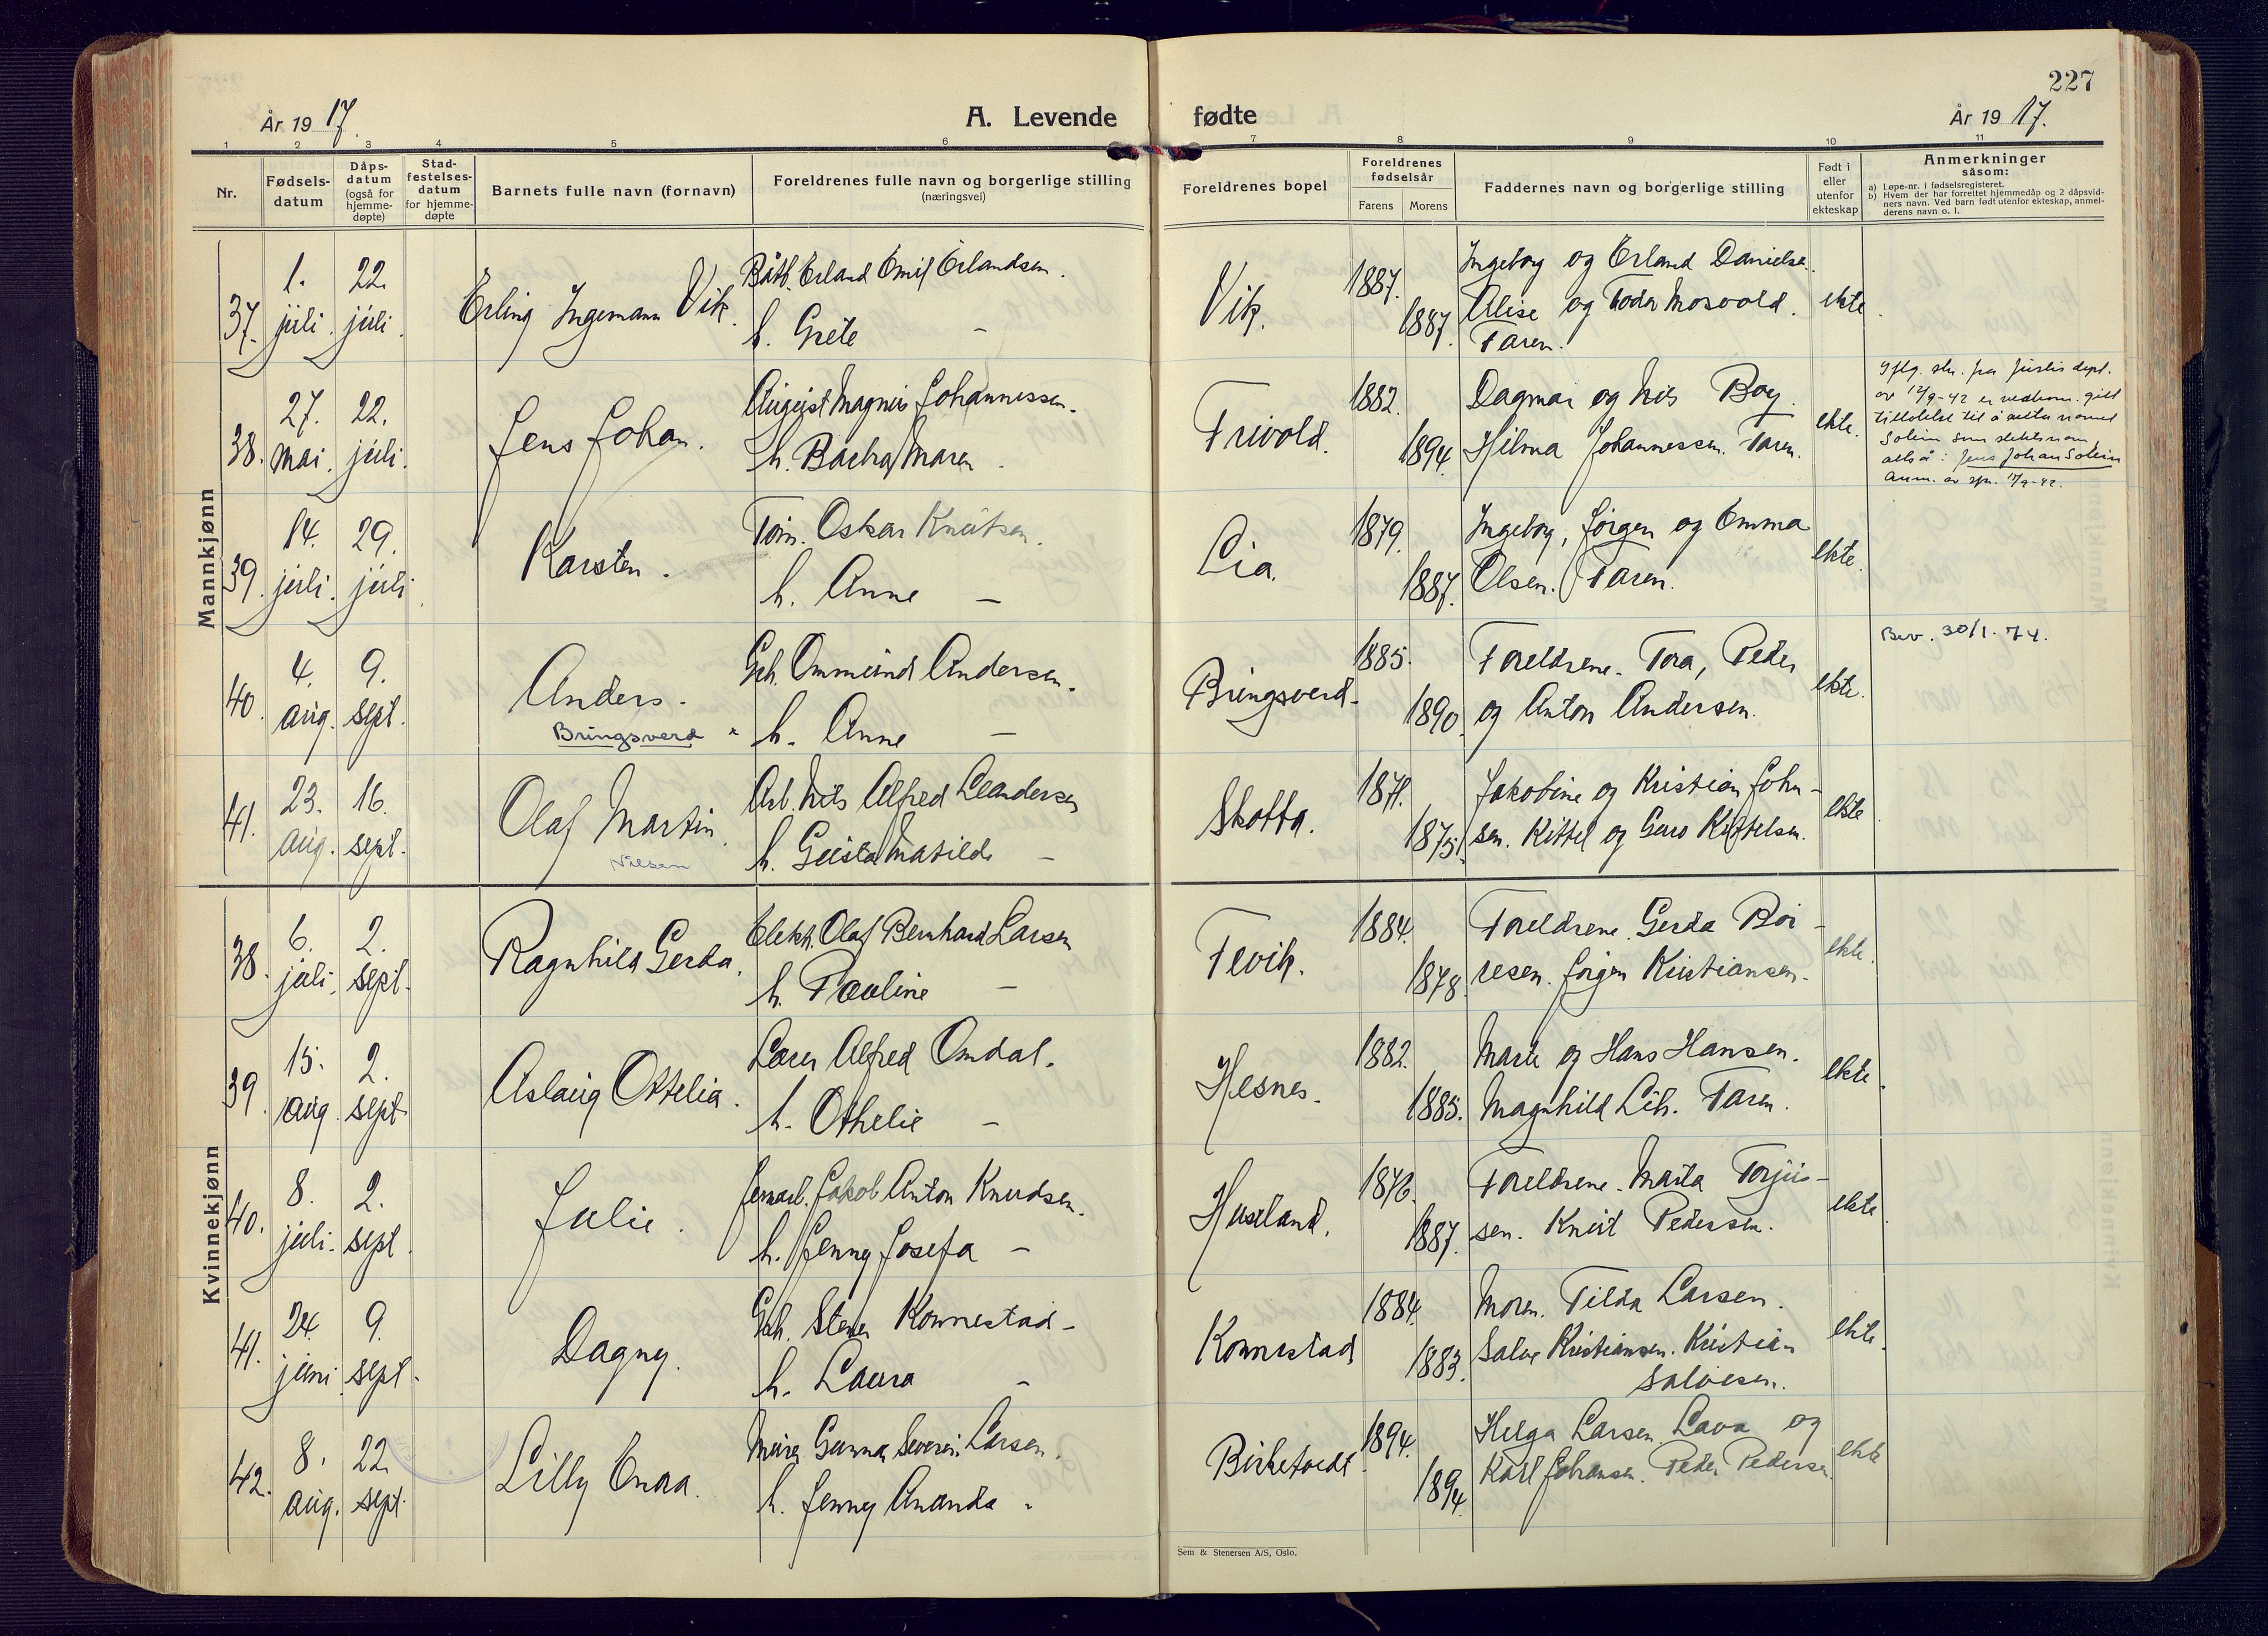 227
År 1917.
A. Levende fødte
År 1917.
1 2 3 4 5 6 7 8 9 10 11
Nr.
Fødsels-
datum
Dåps-
datum
(også for
hjemme-
døpte)
Stad-
festelses-
datum
for hjemme-
døpte
Barnets fulle navn (fornavn)
Foreldrenes fulle navn og borgerlige stilling
(næringsvei)
Foreldrenes bopel
Foreldrenes
fødselsår
Farens Morens
Faddernes navn og borgerlige stilling
Født i
eller
utenfor
ekteskap
Anmerkninger
såsom:
a) Løpe-nr. i fødselsregisteret.
b) Hvem der har forrettet hjemmedåp og 2 dåpsvid-
ners navn. Ved barn født utenfor ekteskap, anmel-
derens navn o. l.
Mannkjønn
37. 1. juli. 22. juli.
Erling Ingemann Vik.
Båtb. Erland Emil Erlandsen.
h. Grete —
Vik.
1887.
1887.
Ingeborg og Erland Danielsen.
Alise og Mosvold.
Faren.
ekte.
38. 27. mai. 22. juli.
Jens Johan.
August Magnus Johannessen.
h. Maren.
Frivold.
1882.
1894.
Dagmar og Nils Boy.
Hilma Johannessen. Faren.
ekte.
Iflg. skr. fra justis dept.
av 12/9-42 er vedkom. gitt
tillatelse til å anta navnet
Solein som slektsnavn,
altså: Jens Johan Solein
Anm. av spr. 17/9-42.
39. 14. juli. 29. juli.
Karsten.
Tøm. Oskar Knutsen.
h. Anne —
Lia.
1879.
1887.
Ingeborg, Jørgen og Emma
Olsen. Faren.
ekte.
40. 4. aug. 9. sept.
Anders.
Bringsverd
Gbr. Ommund Andersen.
h. Anne —
Bringsverd.
1885.
1890.
Foreldrene. Tora, Peder
og Anton Andersen.
ekte.
Bev. 30/1. 74.
41. 23. aug. 16. sept.
Olaf Martin.
Nilsen
Arb. Nils Alfred Leandersen
h. Gusta Matilde —
Skotta.
1871.
1875.
Jakobine og Kristian John-
sen. Kittel og Guro Kittelsen.
ekte.
Kvinnekjønn
38. 6. juli. 2. sept.
Ragnhild Gerda.
Elektr. Olaf Bernhard Larsen
h. Pauline —
Fevik.
1884.
1878.
Foreldrene. Gerda Bør-
resen. Jørgen Kristiansen.
ekte.
39. 15. aug. 2. sept.
Aslaug Ottelia.
Lærer Alfred Omdal.
h. Othelie —
Hesnes.
1882.
1885.
Marie og Hans Hansen.
Magnhild Lih. Faren.
ekte.
40. 8. juli. 2. sept.
Julie.
Jernarb. Jakob Anton Knudsen.
h. Jenny Josefa —
Huseland.
1876.
1887.
Foreldrene. Marta Torjus-
sen. Knut Pedersen.
ekte.
41. 24. juni. 9. sept.
Dagny.
Gbr. Stener Konnestad —
h. Laura —
Konnestad
1884.
1883.
Moren. Tilda Larsen.
Salve Kristiansen. Kristian
Salvesen.
ekte.
42. 8. aug. 22. sept.
Lilly Enaa.
Murer Gunnar Severin Larsen.
h. Jenny Amanda "
Birketvedt.
1894.
1894.
Helga Larsen, Lava og
Karl Johansen. Peder Pedersen.
ekte
Sem & Stenersen A/S, Oslo.